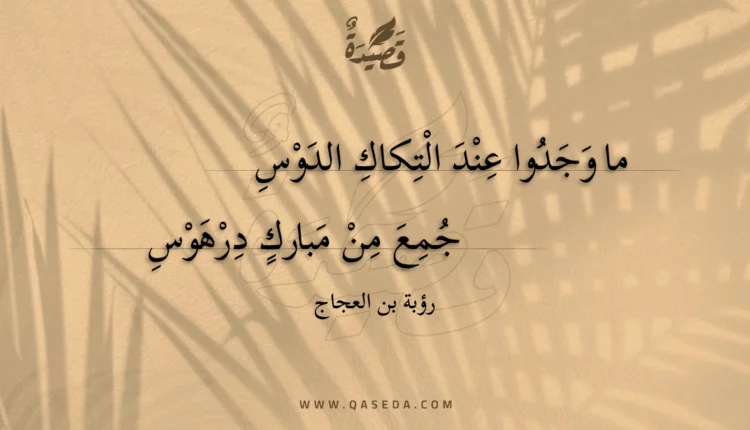 قَصِيْدَةٌ
ما وَجَدُوا عِنْدَ الْتِكاكِ الدَوْسِ
جُمِعَ مِنْ مَبارِكٍ دِرْهَوْسِ
رؤبة بن العجاج
WWW.QASEDA.COM